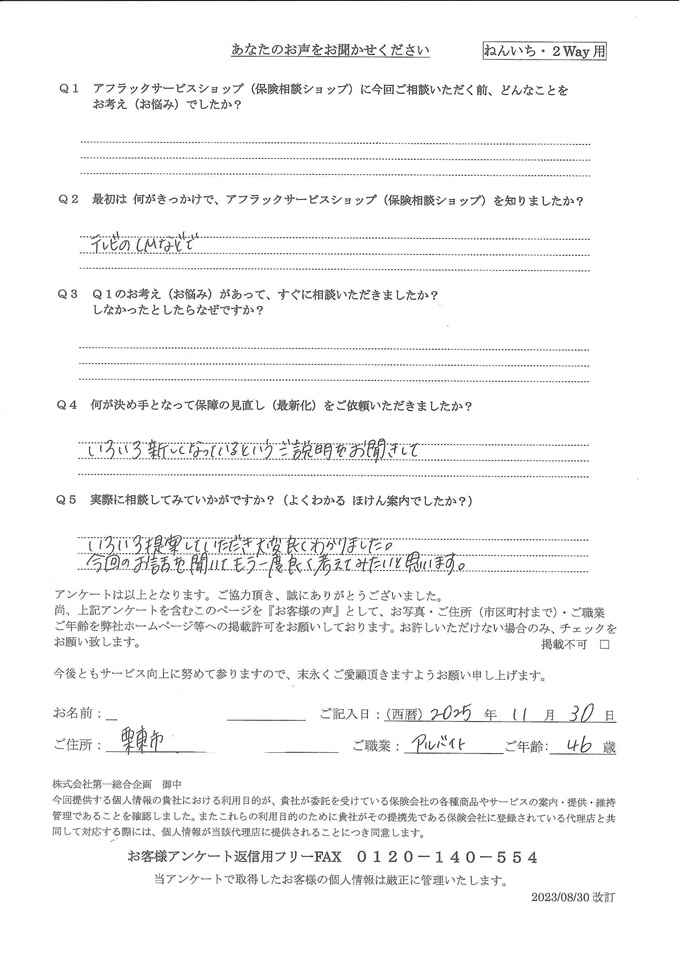 あなたのお声をお聞かせください
ねんいち・2Way用
Q1 アフラックサービスショップ（保険相談ショップ）に今回ご相談いただく前、どんなことを
お考え（お悩み）でしたか？
Q2 最初は 何がきっかけで、アフラックサービスショップ（保険相談ショップ）を知りましたか？
テレビのCMなどで
Q3 Q1のお考え（お悩み）があって、すぐに相談いただきましたか？
しなかったとしたらなぜですか？
Q4 何が決め手となって保障の見直し（最新化）をご依頼いただきましたか？
いろいろ新しくなっているというご説明をお聞きして
Q5 実際に相談してみていかがですか？（よくわかる ほけん案内でしたか？）
いろいろ提案していただき大変良くわかりました。
今回のお話を聞いてもう一度良く考えてみたいと思います。
アンケートは以上となります。ご協力頂き、誠にありがとうございました。
尚、上記アンケートを含むこのページを『お客様の声』として、お写真・ご住所（市区町村まで）・ご職業
ご年齢を弊社ホームページ等への掲載許可をお願いしております。お許しいただけない場合のみ、チェックを
お願い致します。 掲載不可 □
今後ともサービス向上に努めて参りますので、末永くご愛顧頂きますようお願い申し上げます。
お名前： ご記入日：（西暦）2025 年 11 月 30 日
ご住所： 栗東市 ご職業： アルバイト ご年齢： 46 歳
株式会社第一総合企画 御中
今回提供する個人情報の貴社における利用目的が、貴社が委託を受けている保険会社の各種商品やサービスの案内・提供・維持
管理であることを確認しました。またこれらの利用目的のために貴社がその提携先である保険会社に登録されている代理店と共
同して対応する際には、個人情報が当該代理店に提供されることにつき同意します。
お客様アンケート返信用フリーFAX 0120－140－554
当アンケートで取得したお客様の個人情報は厳正に管理いたします。
2023/08/30 改訂